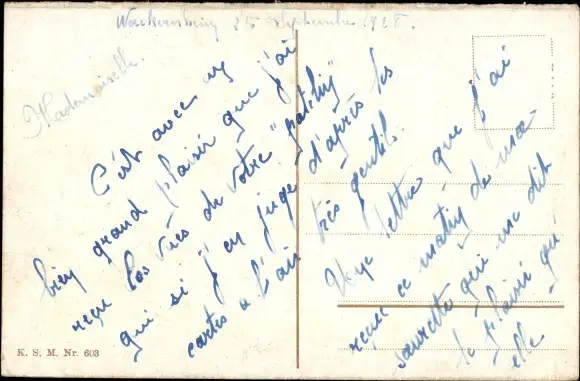 25 Septembre 1928.
Mademoiselle.
C'est avec un
bien grand plaisir que j'ai
reçu les vues de votre "patelin"
qui si j'en juge d'après les
cartes a l'air très gentil.
Une lettre que j'ai
reçue ce matin de ma
sœurette qui me dit
le plaisir qu'
elle
K. S. M. Nr. 603